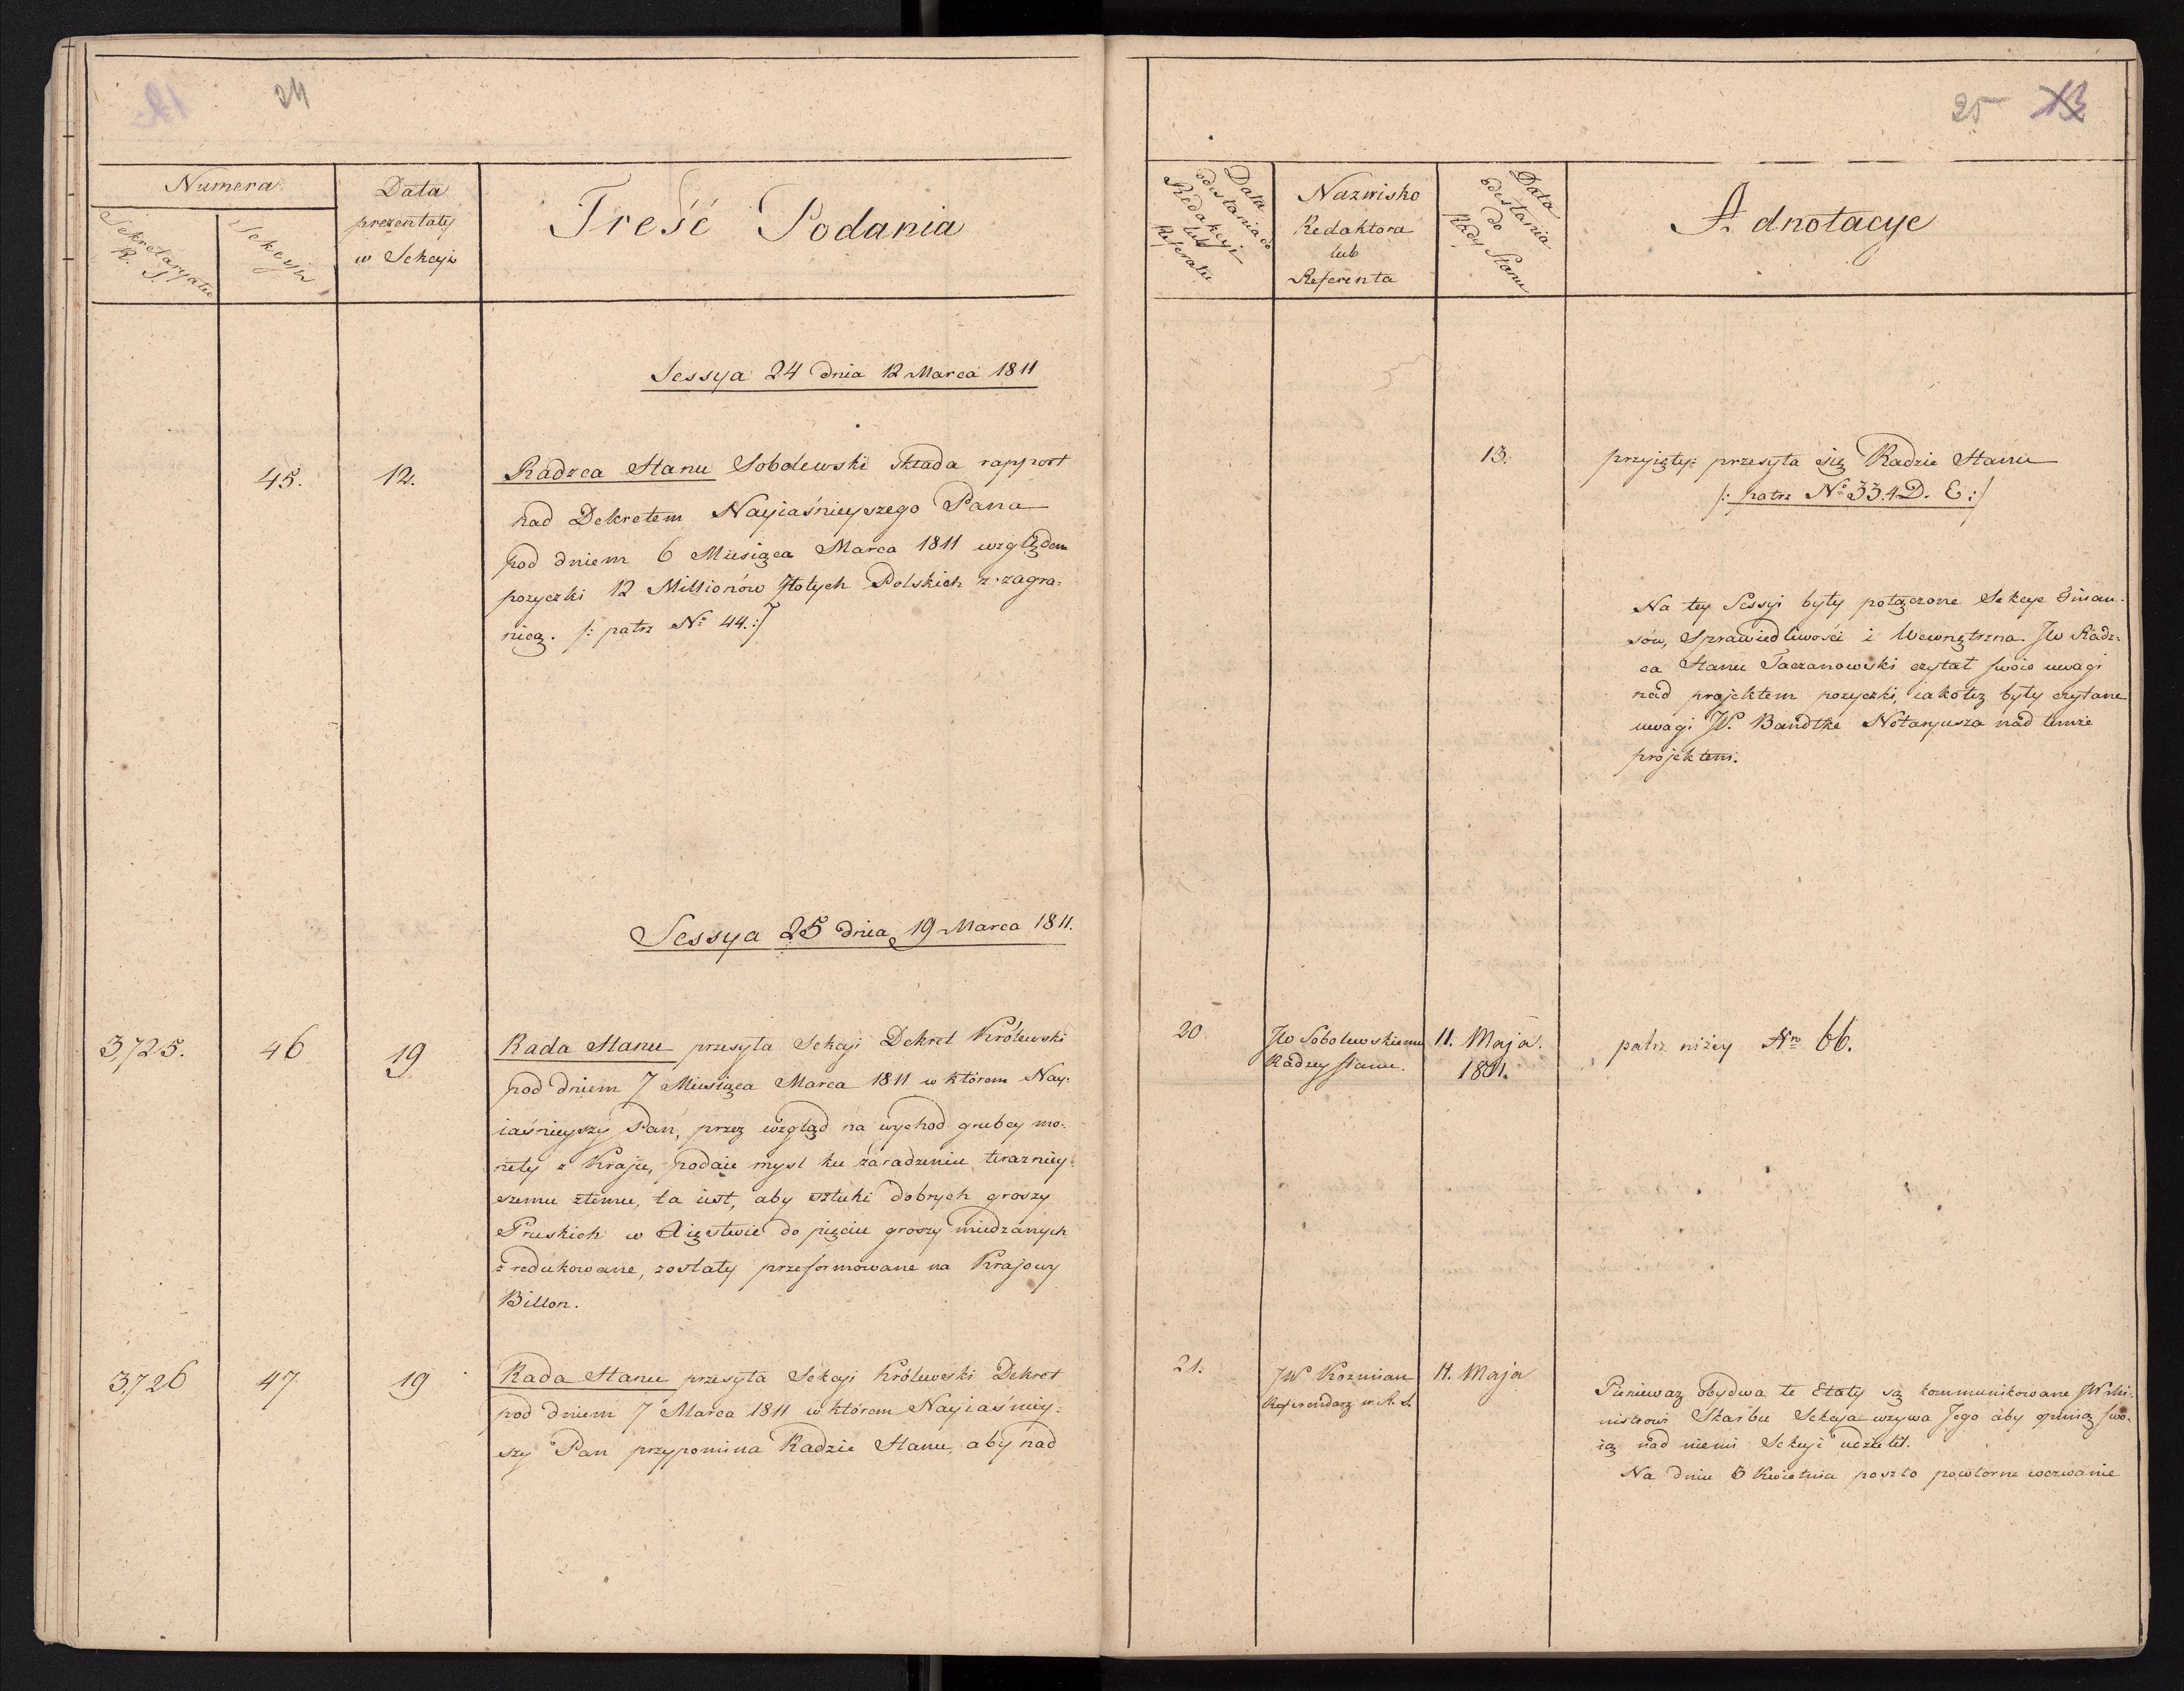 24
Numera
Sekretaryatu
R. S.
Sekcyi
Data
prezentaty
w Sekcyi
Treść Podania
Sessya 24 dnia 12 Marca 1811
45.
12.
Radzca Stanu Sobolewski składa rapport
nad Dekretem Nayiaśnieyszego Pana
pod dniem 6 Miesiąca Marca 1811 względem
pożyczki 12 Millionów Złotych Polskich z zagra:
nicą. /: patrz No 44. :/
Sessya 25 dnia 19 Marca 1811.
3,725.
46
19
Rada Stanu przesyła Sekcyi Dekret Królewski
pod dniem 7 Miesiąca Marca 1811 w którem Nay:
iaśnieyszy Pan, przez wzgląd na wychod grubey mo:
nety z Kraju, podaie mysl ku zaradzeniu teraźniey:
szemu złemu, ta iest, aby sztuki dobrych groszy
Pruskich w Xięstwie do pięciu groszy miedzianych
zredukowane, zostały przeformowane na Krajowy
Billon.
3,726
47
19
Rada Stanu przesyła Sekcyi Królewski Dekret
pod dniem 7 Marca 1811 w którem Nayiaśniey:
szy Pan przypomina Radzie Stanu, aby nad
25 13
Data
odesłania do
Redakcyi
lub
Referatu
Nazwisko
Redaktora
lub
Referenta
Data
odesłania
do
Rady Stanu
Adnotacye
13.
przyięty: przesyła się Radzie Stanu
/: patrz No 33.4 D. E :/
Na tey Sessyi były połączone Sekcye Finan:
sów, Sprawiedliwości i Wewnętrzna. JW Radz:
ca Stanu Taczanowski czytał swoie uwagi
nad projektem pożyczki, iakoteż były czytane
uwagi JP. Bandtke Notaryusza nad temże
projektem.
20
JW Sobolewskiemu
Radzcy Stanu.
11. Maja.
1811.
patrz niżey Nro 66.
21.
JW Kozmian
Referendarz w R. S.
11. Maja
Ponieważ obydwa te Etaty są kommunikowane JW Mi:
nistrowi Skarbu Sekcya wzywa Jego aby opinią swo:
ią nad niemi Sekcyi udzielił.
Na dniu 3 Kwietnia poszło powtorne wezwanie